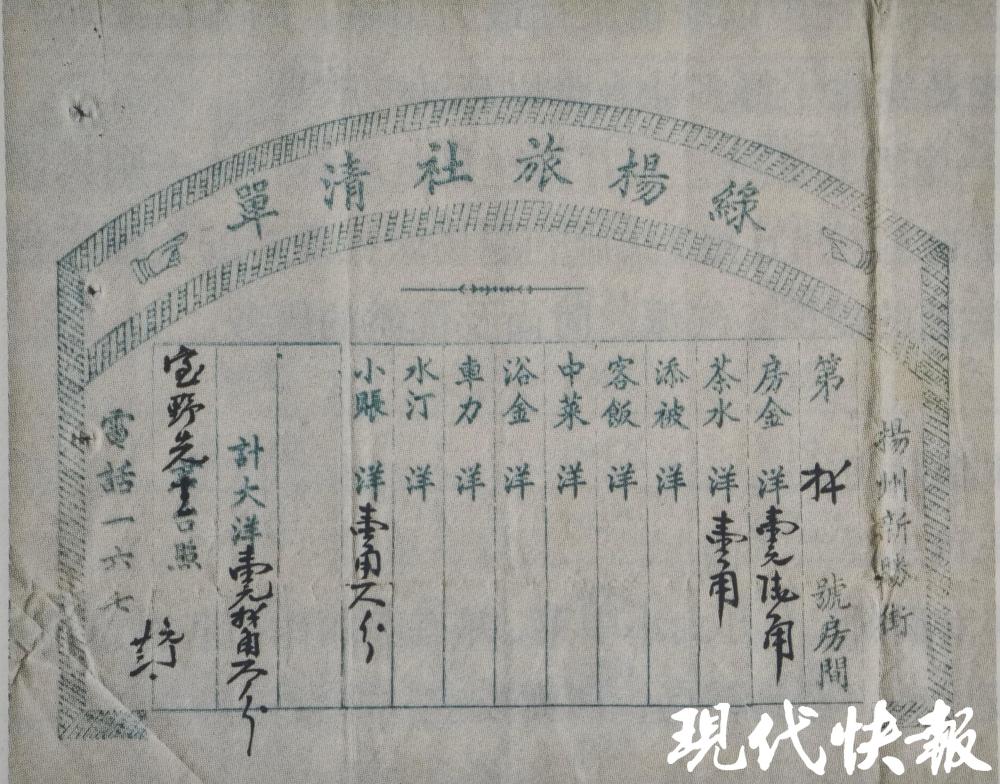 綠楊旅社清單
揚州新勝街
第 捌 號房間
房金 洋壹元陸角
茶水 洋壹角
添被 洋
客飯 洋
中菜 洋
浴金 洋
車力 洋
水汀 洋
小賬 洋壹角六分
計大洋壹元捌角六分
野先生台照
電話一六七
現代快報